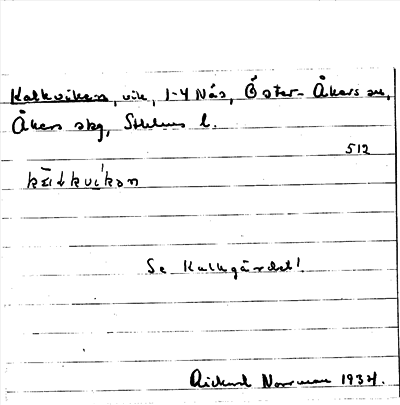 Kalkviken, vik, 1-4 Näs, Öster-Åkers sn,
Åkers skg, Sthlms l.
512
Se Kalkgärdet!
Rickard Norrman 1934.